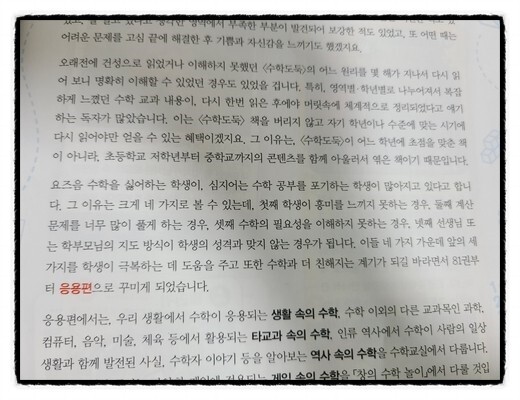 어려운 문제를 고심 끝에 해결한 후 기쁨과 자신감을 느끼기도 했겠지요.
오래전에 건성으로 읽었거나 이해하지 못했던 〈수학도둑〉의 어느 원리를 몇 해가 지나서 다시 읽
어 보니 명확히 이해할 수 있었던 경우도 있었을 겁니다. 특히, 영역별·학년별로 나누어져서 복잡
하게 느꼈던 수학 교과 내용이, 다시 한번 읽은 후에야 머릿속에 체계적으로 정리되었다고 얘기
하는 독자가 많았습니다. 이는 〈수학도둑〉 책을 버리지 않고 자기 학년이나 수준에 맞는 시기에
다시 읽어야만 얻을 수 있는 혜택이겠지요. 그 이유는, 〈수학도둑〉이 어느 학년에 초점을 맞춘 책
이 아니라, 초등학교 저학년부터 중학교까지의 콘텐츠를 함께 아울러서 엮은 책이기 때문입니다.
요즈음 수학을 싫어하는 학생이, 심지어는 수학 공부를 포기하는 학생이 많아지고 있다고 합니
다. 그 이유는 크게 네 가지로 볼 수 있는데, 첫째 학생이 흥미를 느끼지 못하는 경우, 둘째 계산
문제를 너무 많이 풀게 하는 경우, 셋째 수학의 필요성을 이해하지 못하는 경우, 넷째 선생님 또
는 학부모님의 지도 방식이 학생의 성격과 맞지 않는 경우가 됩니다. 이들 네 가지 가운데 앞의 세
가지를 학생이 극복하는 데 도움을 주고 또한 수학과 더 친해지는 계기가 되길 바라면서 81권부
터 응용편으로 꾸미게 되었습니다.
응용편에서는, 우리 생활에서 수학이 응용되는 생활 속의 수학, 수학 이외의 다른 교과목인 과학,
컴퓨터, 음악, 미술, 체육 등에서 활용되는 타교과 속의 수학, 인류 역사에서 수학이 사람의 일상
생활과 함께 발전된 사실, 수학자 이야기 등을 알아보는 역사 속의 수학을 수학교실에서 다룹니다.
게임 속의 수학을 「창의 수학 놀이」에서 다룰 것입